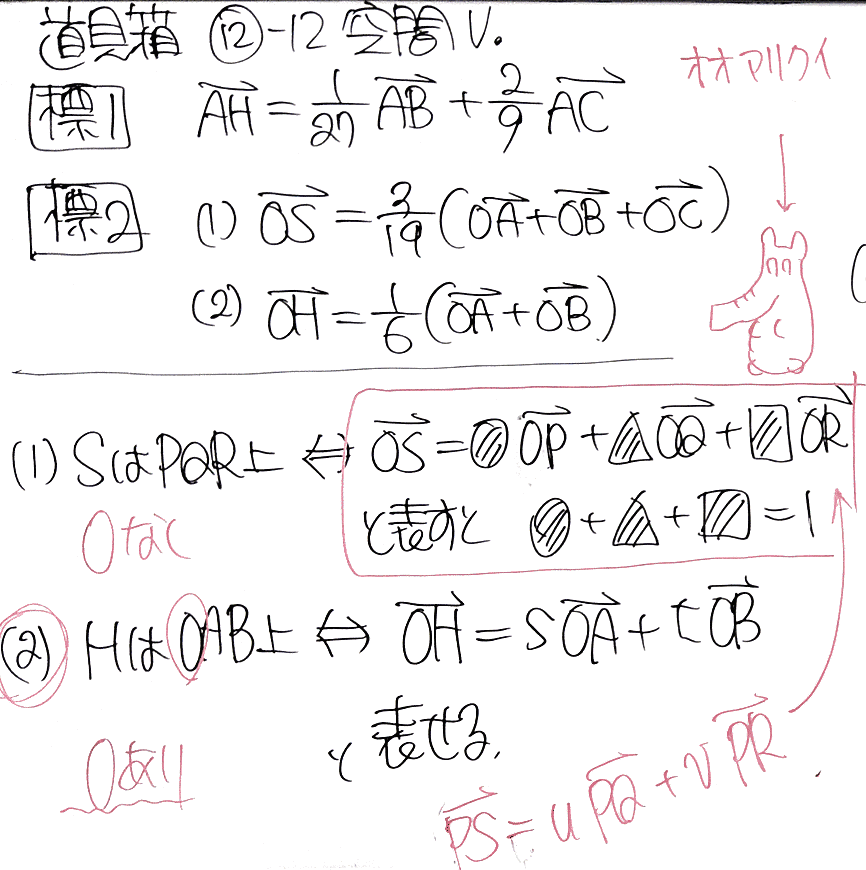 道具箱 ⑫-12 空間V.
オオアリクイ
標1 AH→ = 1/27 AB→ + 2/9 AC→
標2 (1) OS→ = 3/19 (OA→ + OB→ + OC→)
(2) OH→ = 1/6 (OA→ + OB→)
(1) SはPQR上 ⇔ OS→ = ○OP→ + △OQ→ + □OR→
と表すと ○ + △ + □ = 1
Oなし
(2) HはOAB上 ⇔ OH→ = sOA→ + tOB→
と表せる.
Oあり
PS→ = uPQ→ + vPR→